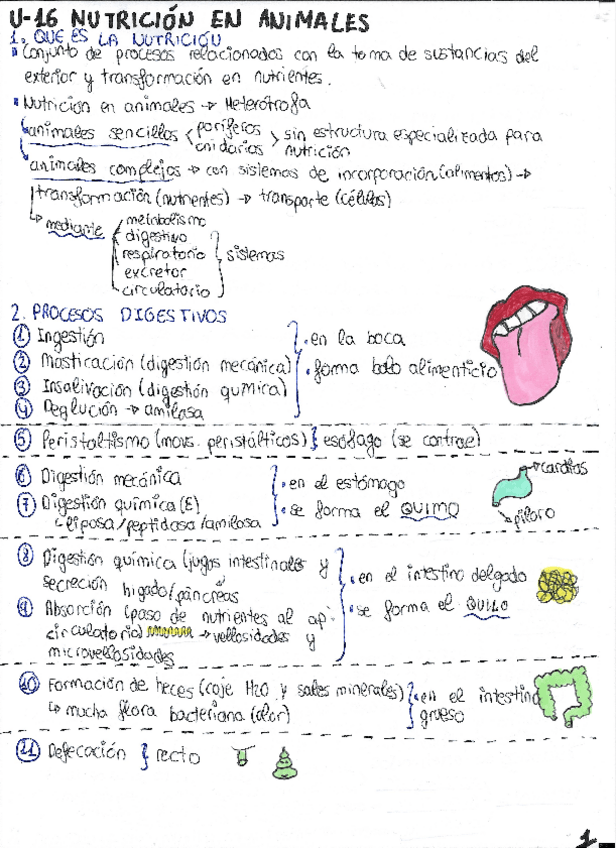 U-16 NUTRICIÓN EN ANIMALES
1. QUE ES LA NUTRICIÓN
Conjunto de procesos relacionados con la toma de sustancias del
exterior y transformación en nutrientes.
Nutrición en animales → Heterótrofa
animales sencillos < poríferos cnidarios > sin estructura especializada para
nutrición
animales complejos → con sistemas de incorporación (alimentos) →
transformación (nutrientes) → transporte (células)
mediante
metabolismo
digestivo
respiratorio } sistemas
excretor
circulatorio
2. PROCESOS DIGESTIVOS
① Ingestión } · en la boca
② Masticación (digestión mecánica) · forma bolo alimenticio
③ Insalivación (digestión química)
④ Deglución → amilasa
⑤ Peristaltismo (movs. peristálticos) } esófago (se contrae)
⑥ Digestión mecánica } · en el estómago
⑦ Digestión química (E) · se forma el QUIMO
liposa/peptidasa/amilasa
cardias
píloro
⑧ Digestión química (jugos intestinales y
secreción hígado/páncreas } · en el intestino delgado
⑨ Absorción (paso de nutrientes al ap. · se forma el QUILO
circulatorio) → vellosidades y
microvellosidades
⑩ Formación de heces (coje H2O y sales minerales) } · en el intestino
↳ mucha flora bacteriana (olor) grueso
⑪ Defecación } recto
1